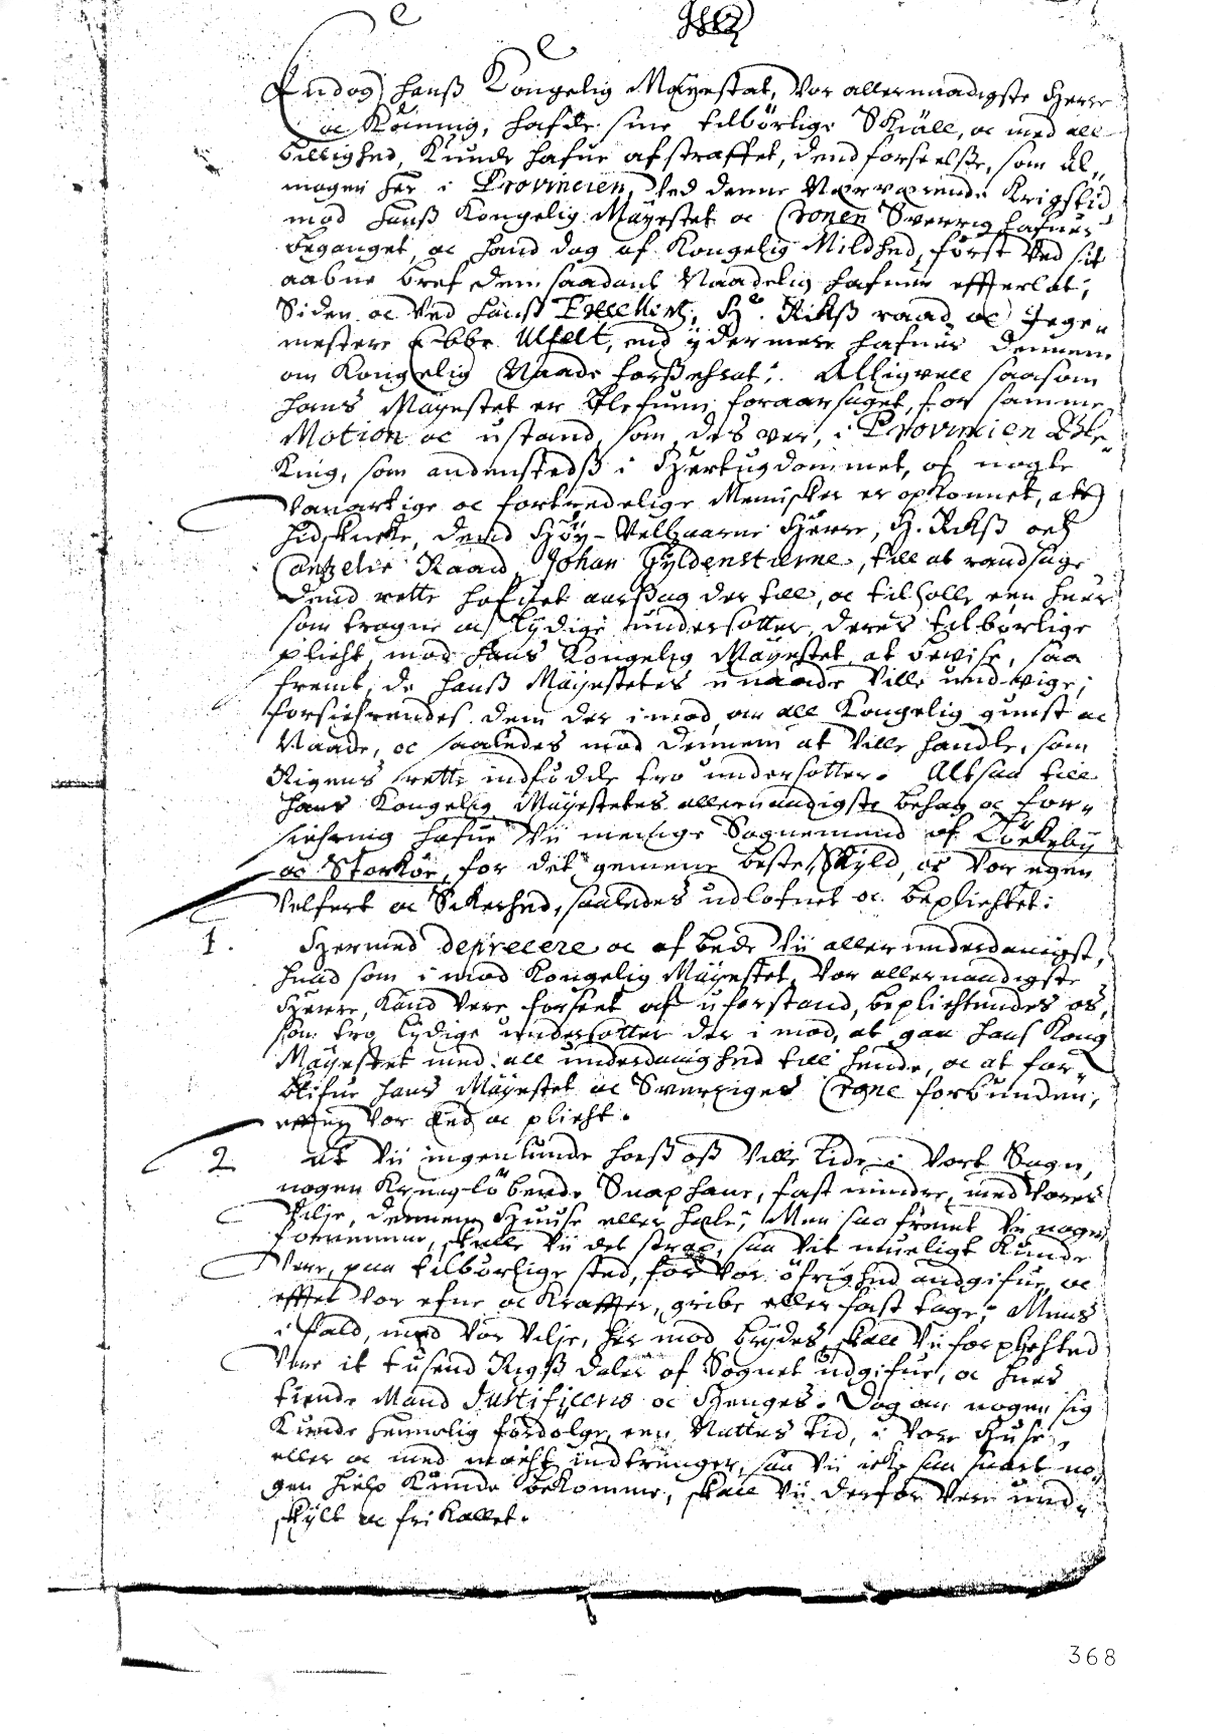 Endog hanß Kongelig Mayestat, Vor allernaadigste Herre
oc Könning, hafde sine tilbörlige Skiäll, oc med all
billighed, Kunde hafue afstraffet, dend forseelsse, som Al„
mogen her i Provincien, Ved denne Nærværende Krigstid
mod hanß Kongelig Mayestet oc Cronen Sverrig hafuer
beganget, oc hand dog af Kongelig Mildhed, först Ved sit
aabne bref dem saadant Naadelig hafuer effterlat;
Siden oc Ved hanß Excellentz, Hr. Rikß raad oc Jegen
mestere Ebbe Ulfelt, end ydermere hafuer dennem
om Kongelig Naade forßehrat; Alligevell saasom
hans Mayestet er blefuen foraarsaget, for samme
Motion oc ustand, som, des ver, i Provincien Ble„
King, som andenstedß i Hertugdommet, af nogle
Vanartige oc fortredelige Menisker er opkommet, at
hidskicke, dend Höy-Velbaarne Herre, H. Rikß och
Cantzelie Raad, Johan Gyldenstierne, till at randsage
dend rette hafuet aarsag der till, oc tilholle een huer
som trogne oc lydige undersotter, deres tilbörlige
plicht, mod hans Kongelig Mayestet at bevise, saa
fremt, de hanß Mayestetes unaade Ville undvige;
forsichrendes dem der imod, om all Kongelig gunst oc
Naade, oc saaledes mod dennem at Ville handle, som
Rigens rette indfödde tro undersotter. Altsaa till
hans Kongelig Mayestetes allernaadigste behag oc for„
sichring hafue Vii menige Sognemend af Lörkeby
oc Storkör, for det gemene beste Skyld, oc Vor egen
Velfert oc Sikerhed, saaledes udlofuet oc beplichtet:
1. Hermed deprecere oc af bede Vii allerunderdanigst,
huad som imod Kongelig Mayestet, Vor allernaadigste
Herre, Kand Vere forseet af uforstand, beplichtendes os,
som tro lydige undersotter der imod, at gaa hans Kong
Mayestet med all underdanighed till hende, oc at for„
blifue hans Mayestet oc Sveriges Crone forbunden,
effter Vor Eed oc plicht.
2 At Vii ingenlunde hoeß oß Ville lide i Vort Sogn,
nogen Kringlöbende Snaphane, fast mindre, med Vores
Vilje, dennem Huuse eller hele; Men saa fremt Vii nogen
fornemme, skulle Vii det strax, saa Vit mueligt Kunde
Vere, paa tilbörlige sted, for Vor öfrighed andgifue, oc
effter Vor efne oc Kraffter, gribe eller fast tage; Mens
i fald, med Vor Vilje, her mod brydes, skall Vii forplichted
Vere it tusend Rigß daler af Sognet udgifue, oc huer
tiende Mand Justificeris oc Henges. Dog om nogen sig
Kunde hemmelig fordölge een Nattes tid, i Vore Huse,
eller oc med macht indtrenger, saa Vii icke saa snart no„
gen hielp Kunde bekomme, skall Vii derfor Vere und„
skylt oc fri Kallet.
368